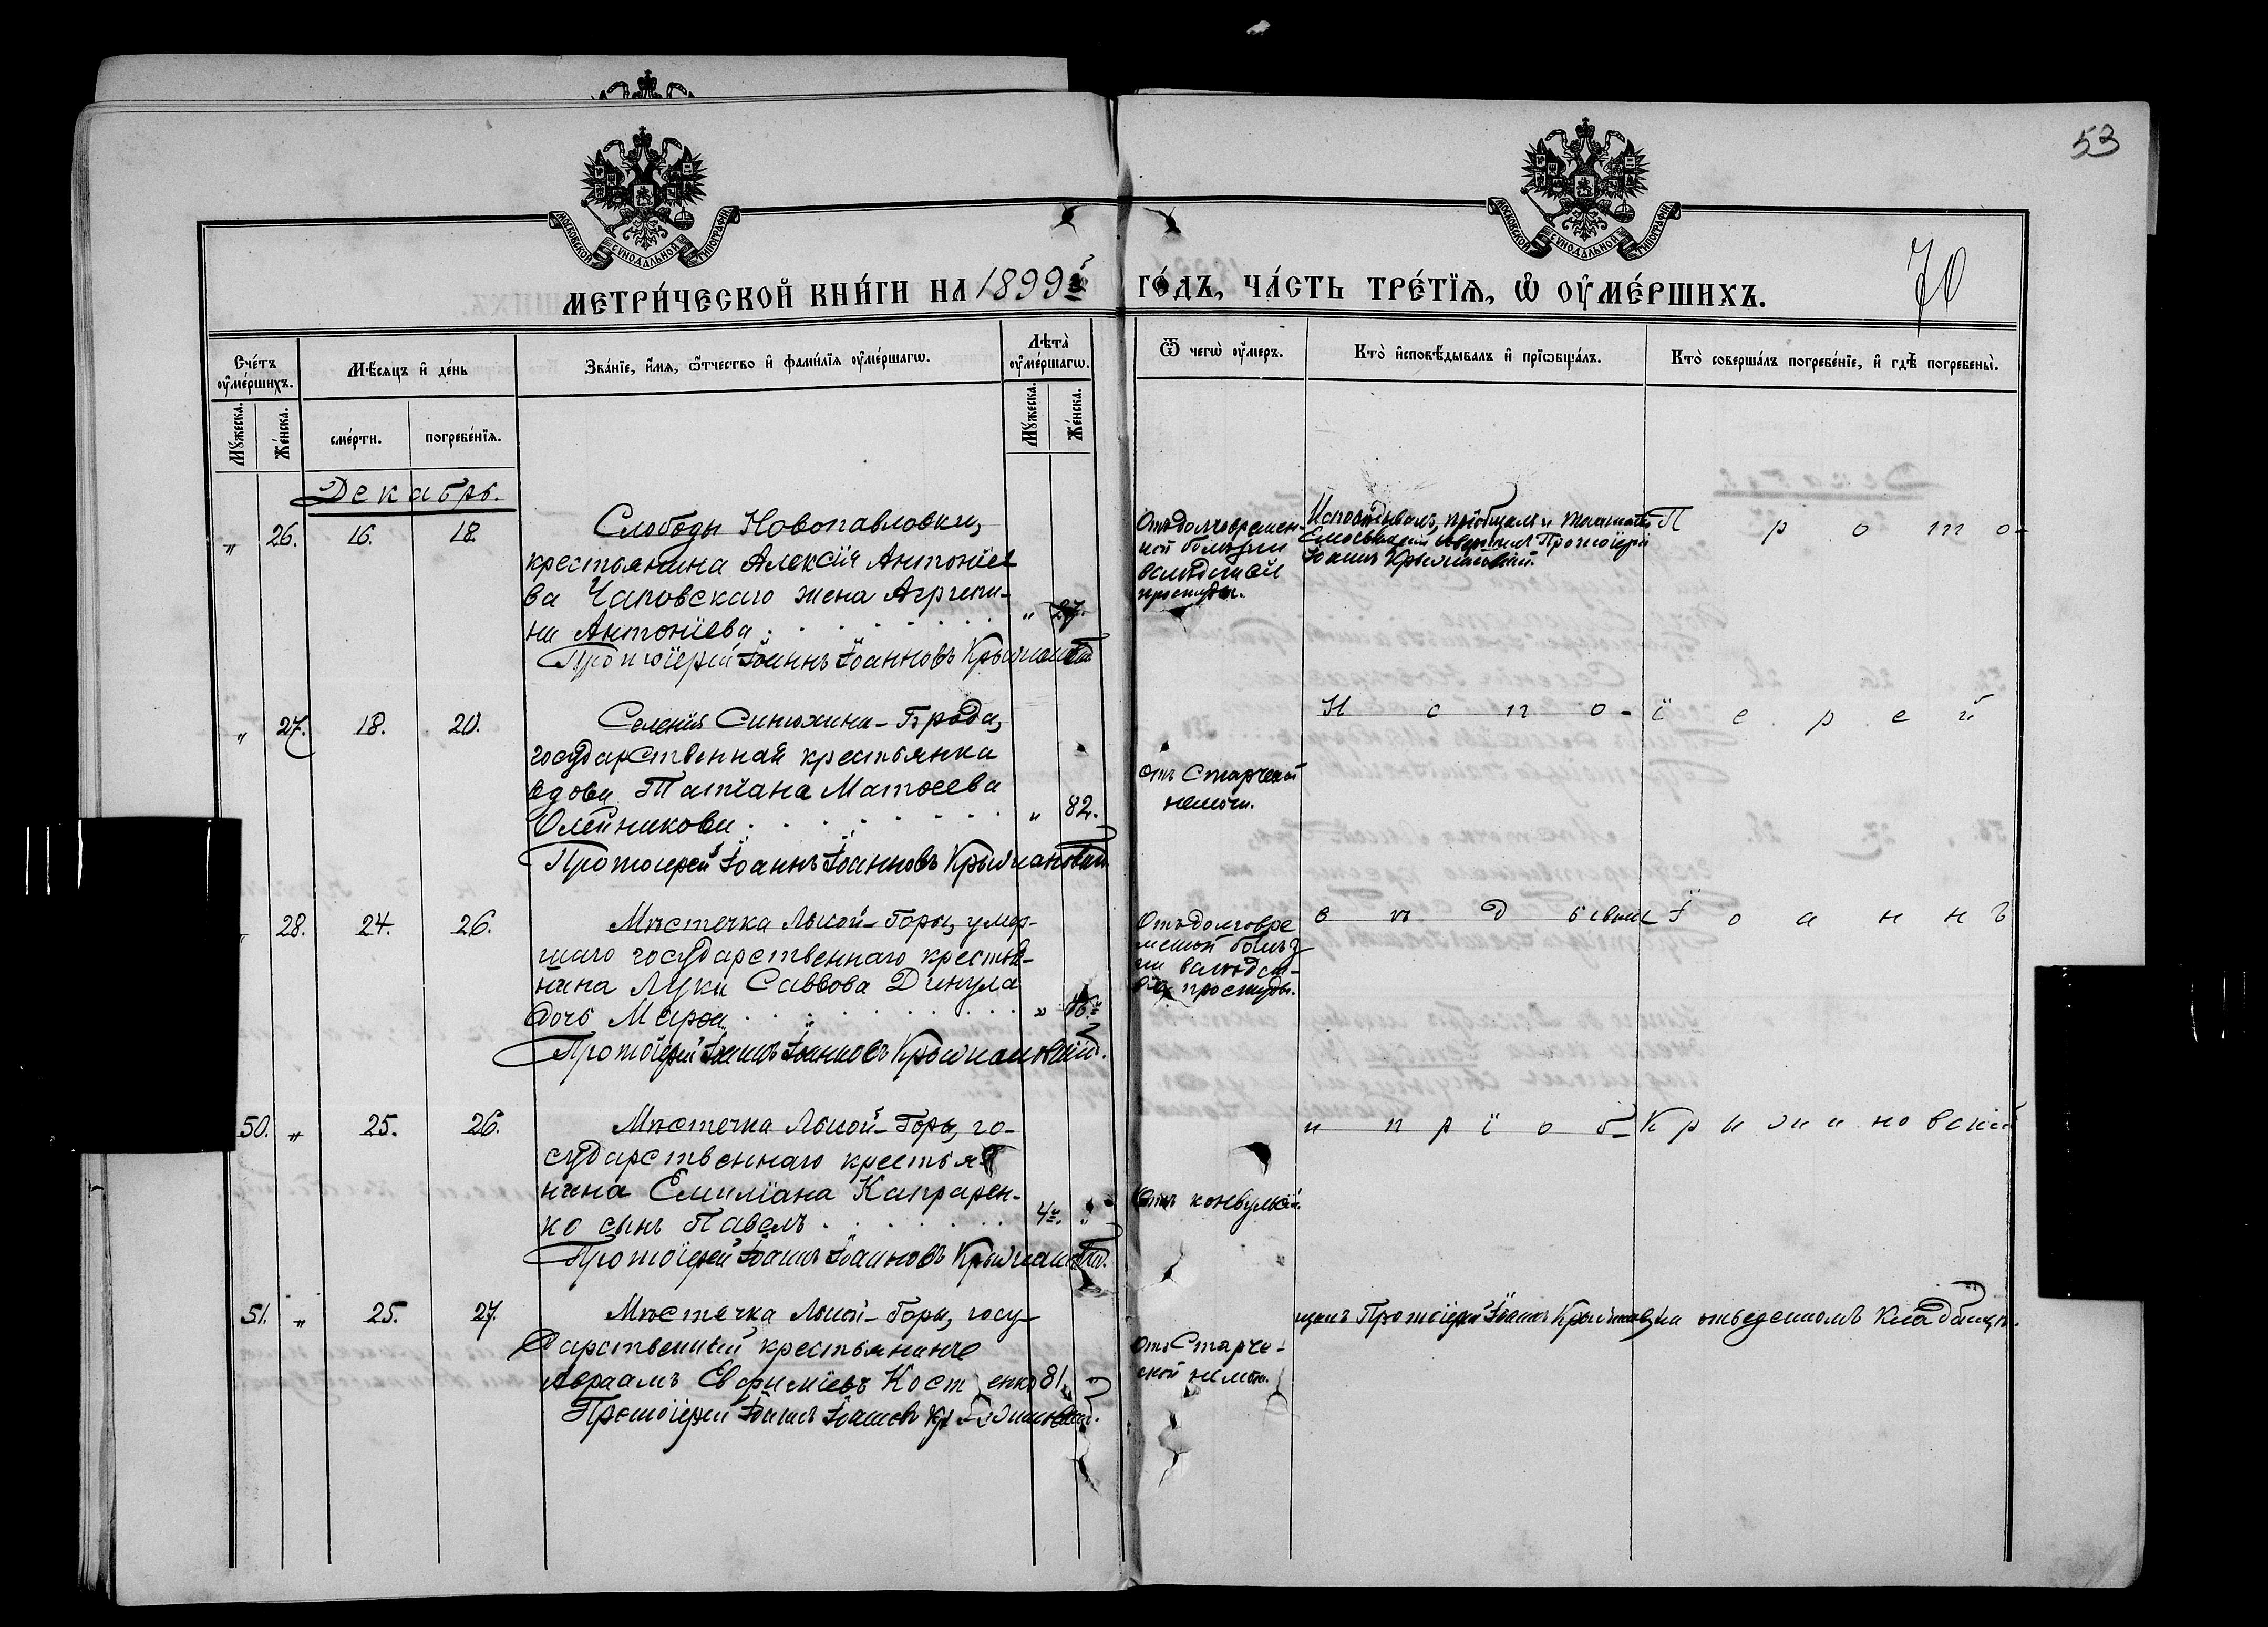 53
МОСКОВСКОЙ СѴНОДАЛЬНОЙ ТИПОГРАФІИ
МОСКОВСКОЙ СѴНОДАЛЬНОЙ ТИПОГРАФІИ
70
МЕТРИ́ЧЕСКОЙ КНИ́ГИ НА 1899й
ГО́ДЪ, ЧА́СТЬ ТРЕ́ТЇѦ, Ѡ ОУ҆МЕ́РШИХЪ.
Сче́тъ оу҆ме́ршихъ.
Мѣ́сяцъ и҆ де́нь
Зва́нїе, и҆́мѧ, ѻ҆́тчество и҆ фами́лїѧ оу҆ме́ршагѡ.
Лѣта̀ оу҆ме́ршагѡ.
Ѿ чегѡ̀ оу҆́меръ.
Кто̀ и҆сповѣ́дывалъ и҆ прїѡбща́лъ.
Кто̀ соверша́лъ погребе́нїе, и҆ гдѣ̀ погребены̀.
Мꙋ́жеска.
Же́нска.
сме́рти.
погребе́нїѧ.
Мꙋ́жеска.
Же́нска.
Декабрь.
„ 26. 16. 18.
Слободы Новопавловки,
крестьянина Алексія Антоніе
ва Чаповскаго жена Агрипи-
на Антоніева „ 27.
Протоіерей Іоаннъ Іоанновъ Крыжановскій
Отъ долговремен-
ной болѣзни
вслѣдствіе
простуды.
Исповѣдывалъ, пріобщалъ и
Протоіерей
Іоаннъ Крыжановскій.
П р о т о-
„ 27. 18. 20.
Селенія Синюхина-Брода,
государственная крестьянка
вдова Татіана Матѳеева
Олейникова „ 82.
Протоіерей Іоаннъ Іоанновъ Крыжановскій
Отъ старческой
немочи.
И с п о-
і е р е й
„ 28. 24. 26.
Мѣстечка Лысой-Горы, умер-
шаго государственнаго крестья-
нина Луки Саввова Дикула
дочь Марѳа „
Протоіерей Іоаннъ Іоанновъ Крыжановскій.
Отъ долговре
менной болѣз
ни вслѣдст-
вія простуды.
в ѣ д ывалъ
І о а н н ъ
50. „ 25. 26.
Мѣстечка Лысой-Горы, го-
сударственнаго крестья-
нина Емиліана Капрарен-
ко сынъ Павелъ 4 „
Протоіерей Іоаннъ Іоанновъ Крыжановскій.
Отъ конвульсій.
и п р і о б-
К р ы ж а новскій
51. „ 25. 27.
Мѣстечка Лысой-Горы, госу-
дарственный крестьянинъ
Авраамъ Евфиміевъ Кост енко 81. „
Протоіерей Іоаннъ Іоанновъ Крыжановскій.
Отъ старче-
ской немочи.
щалъ Протоіерей Іоаннъ Крыжановскій
На отведенномъ кладбищѣ.